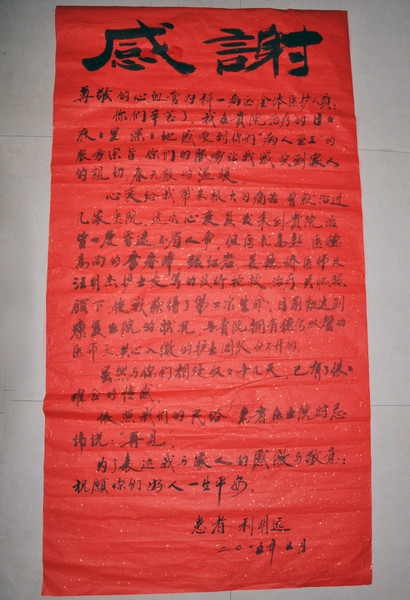 感謝
尊敬的心血管内科一病区全体医护人员:
你们辛苦了,我在贵院治疗的日日
夜夜里,深深地感受到你们"病人至上"的
服务宗旨,你们的服务让我感受到家人
的亲切,春天般的温暖
心衰给我带来极大的痛苦,曾救治过
几家医院,这次心衰复发来到贵院治
曾一度昏迷不省人事,但医术高超,医德
高尚的 医师及
护士 等的 治疗
顾下,使我获得了第二次生命,目前已达到
康复出院的状况,与贵院拥有
医师 关心入微的护士团队分不开的。
虽然与你们相处仅仅十几天,已有了依依
难舍的情感
依照我们的民俗,患者在出院时忌
讳说:"再见"
为了表达我与家人的感激与敬意:
祝愿你们好人一生平安。
患者 利明远
二〇一五年五月